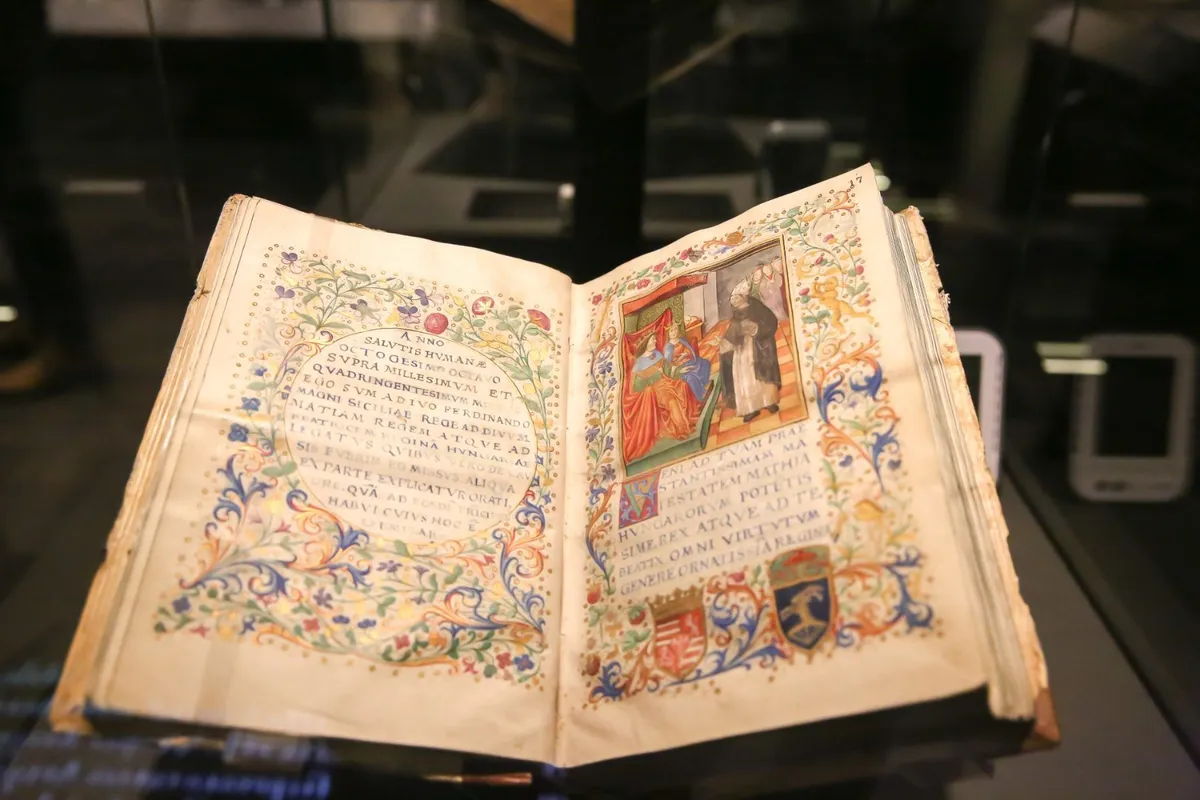 ANNO
SALVTIS HVMANÆ
OCTOGESIMO OCTAVO
SVPRA MILLESIMVM ET
QVADRINGENTESIMVM
EGO SVM AD IVO FERDINANDO
MAGNI SICILIAE REGE AD DIVVM
MATIAM REGEM ATQVE AD
REGINĀ HVNGARAE
LEGATVS QVIBVS VERO DE
MISSVS ALIQVA
EX PARTE EXPLICATVR ORATI
QVĀ AD
HABVI CVIVS HOC Ē
ad 7
VENI AD TVAM PRAE
STANTISSIMAM MA
IESTATEM MATHIA
HVNGARORVM POTĒTIS
SIME REX ATQVE AD TE
BEATIX OMNI VIRTVTVM
GENERE ORNATISSĪA REGINA